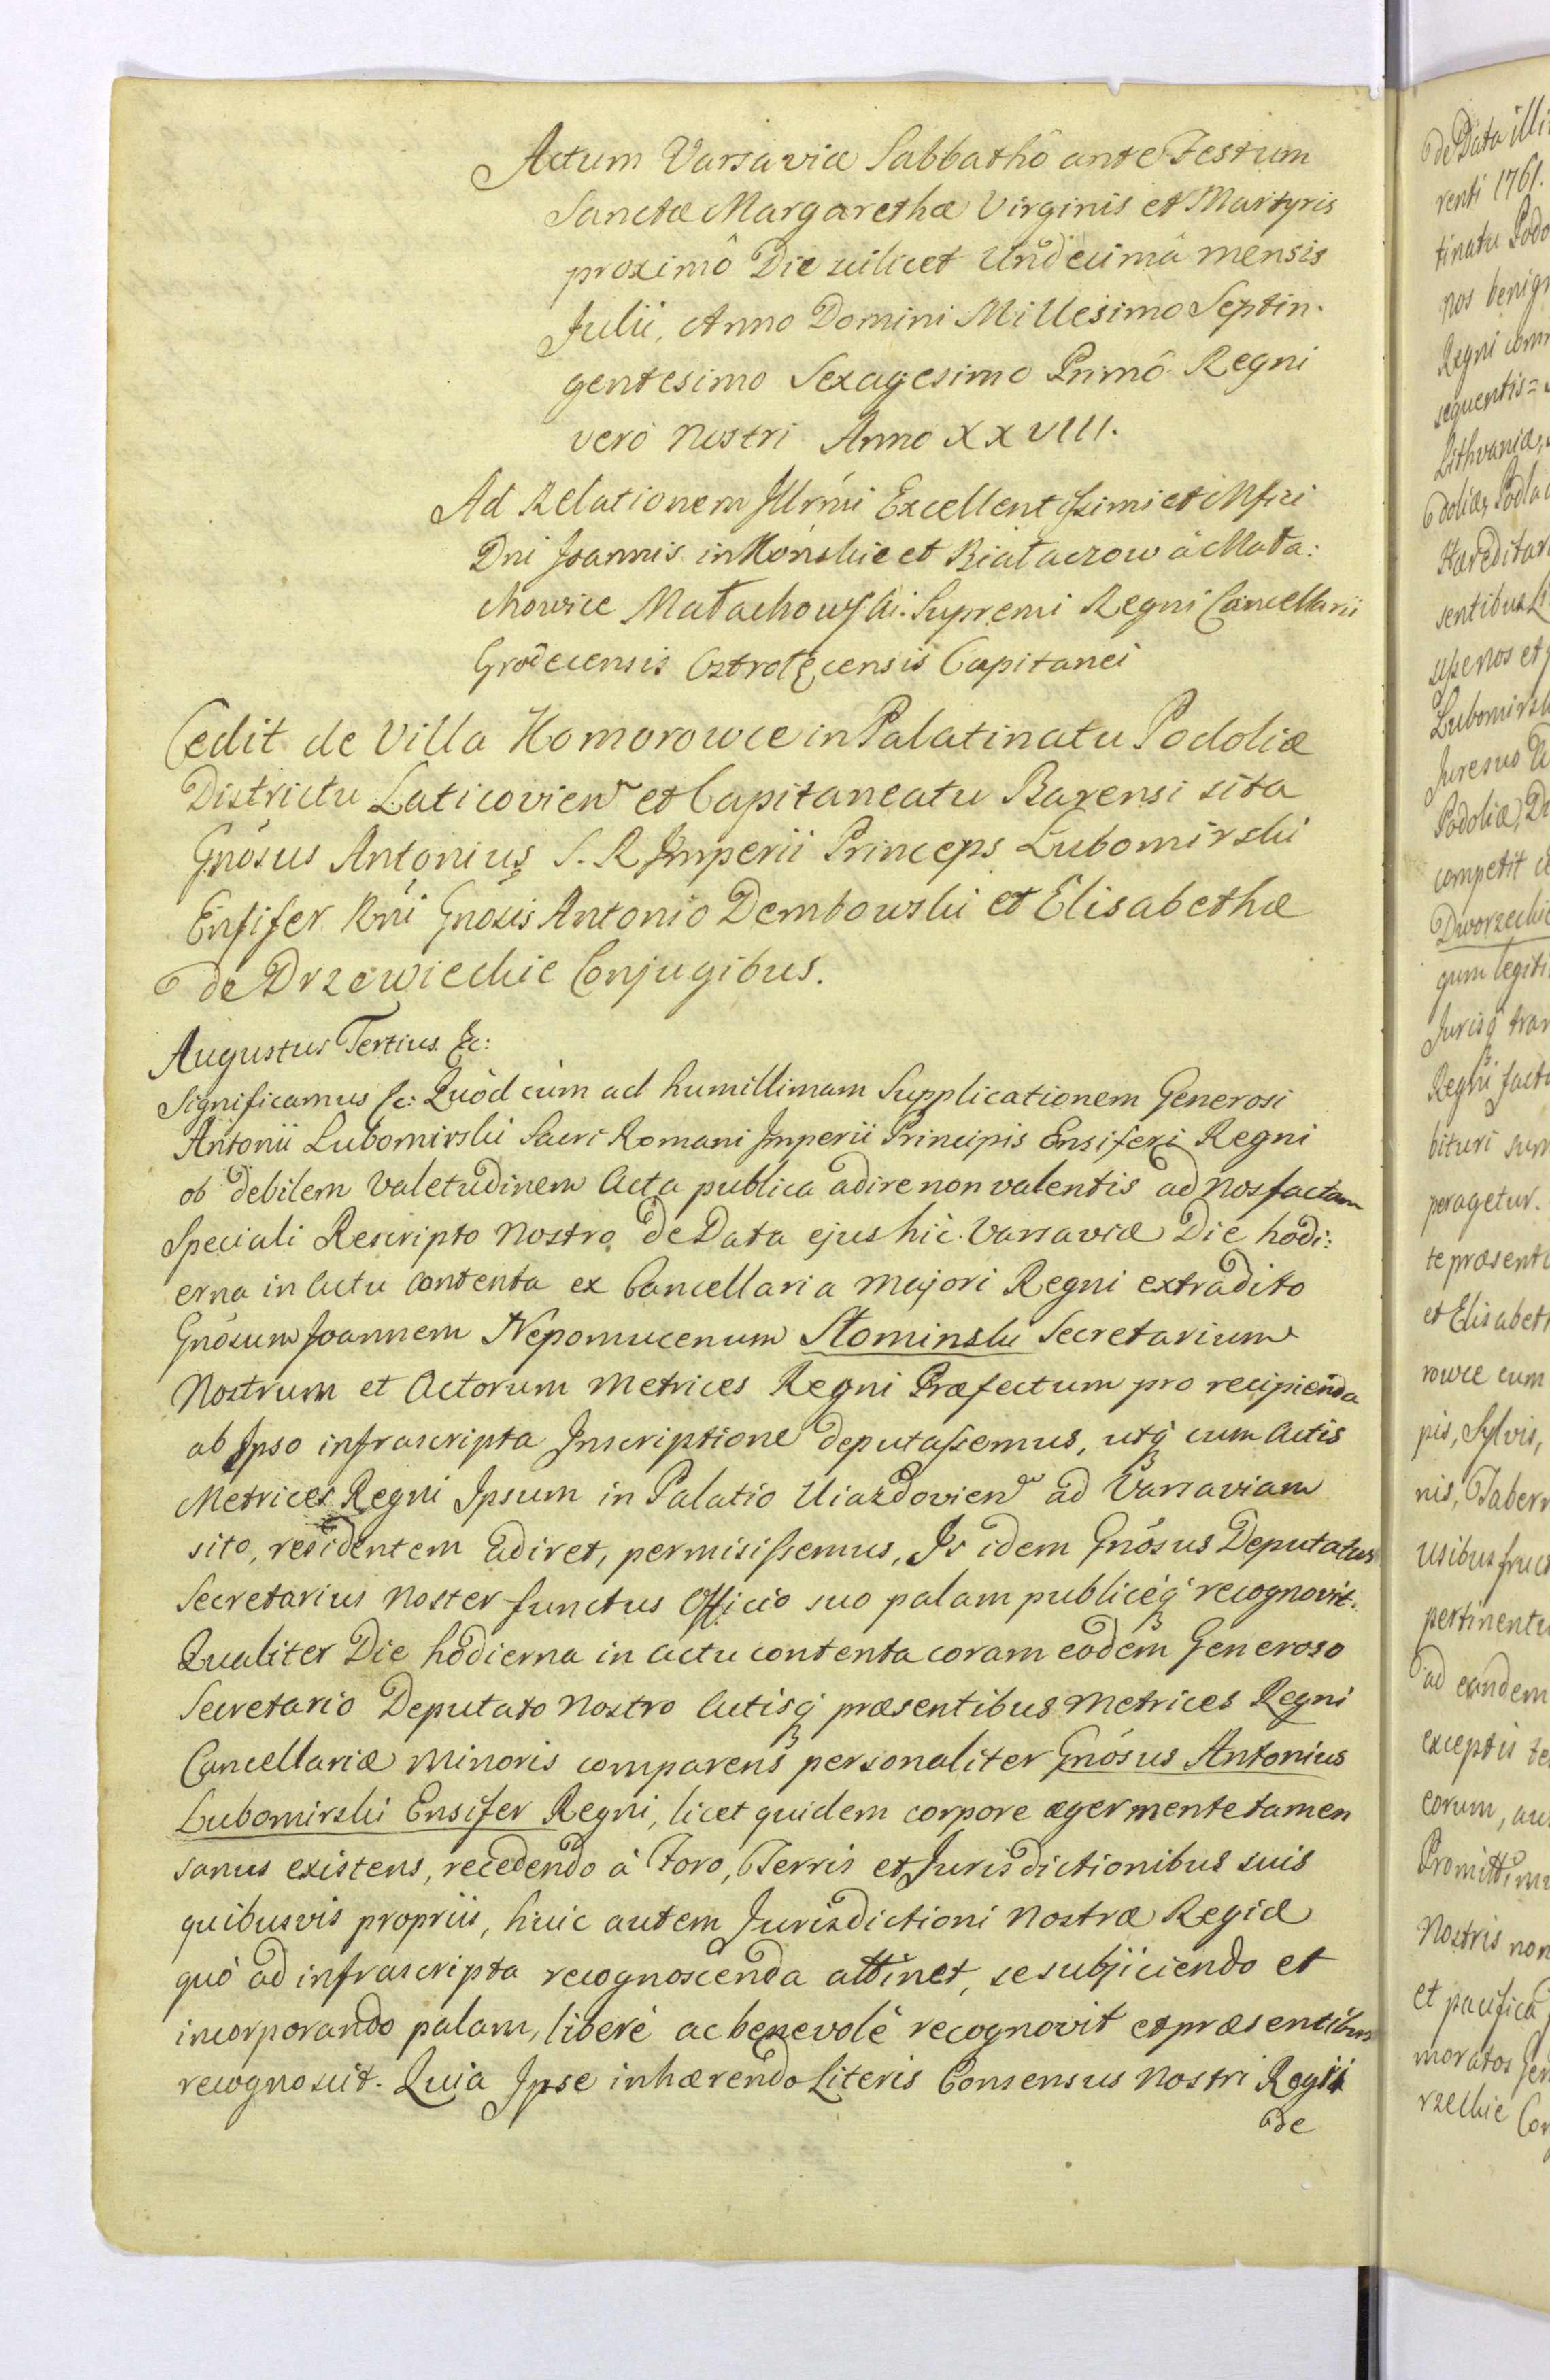 Actum Varsaviæ Sabbathô ante Festum
Sanctæ Margarethæ Virginis et Martyris
proximô Die scilicet Undecimâ mensis
Julii, Anno Domini Millesimo Septin-
gentesimo Sexagesimo Primô Regni
verò Nostri Anno XXVIII.
Ad Relationem Illrmi Excellentissimi et Mfici
Dni Joannis in Końskie et Białaczow à Mała:
chowice Małachowski Supremi Regni Cancellarii
Grodecensis Ostrołęcensis Capitanei
Cedit de Villa Komorowce in Palatinatu Podoliæ
Districtu Laticovien et Capitaneatu Barensi sita
Gnosus Antonius S. R Imperii Princeps Lubomirski
Ensifer Rni Gnosis Antonio Dembowski et Elisabethæ
de Drzewieckie Conjugibus.
Augustus Tertius &c:
Significamus &c: Quòd cùm ad humillimam Supplicationem Generosi
Antonii Lubomirski Sacri Romani Imperii Principis Ensiferi Regni
ob debilem valetudinem Acta publica adire non valentis ad Nos factam
Speciali Rescripto Nostro de Data ejus hic Varsaviæ Die hodi:
erna in Actu contenta ex Cancellaria Majori Regni extradito
Gnosum Joannem Nepomucenum Słominski Secretarium
Nostrum et Actorum Metrices Regni Præfectum pro recipienda
ab Ipso infrascripta Inscriptione deputassemus, utq cum Actis
Metrices Regni Ipsum in Palatio Uiazdovien ad Varsaviam
sito, residentem adiret, permisissemus, Is idem Gnosus Deputatus
Secretarius Noster functus Officio suo palam publiceq recognovit.
Qualiter Die hodierna in Actu contenta coram eodem Generoso
Secretario Deputato Nostro Actisq præsentibus Metrices Regni
Cancellariæ Minoris comparens personaliter Gnosus Antonius
Lubomirski Ensifer Regni, licet quidem corpore æger mente tamen
sanus existens, recedendo à Foro, Terris et Jurisdictionibus suis
quibusvis propriis, huic autem Jurisdictioni Nostræ Regiæ
quò ad infrascripta recognoscenda attinet, se subjiciendo et
incorporando palam, liberè ac benevolè recognovit et præsentibus
recognoscit. Quia Ipse inhærendo Literis Consensus Nostri Regii
de
de Data illi
renti 1761.
tinatu Podo
nos benign
Regni comm
sequentis=
Lithvaniæ,
doliæ, Podlac
Hæreditari
sentibus Li
esse nos et
Lubomirsk
Jure suo
Podoliæ, Di
competit
Dworzecki
gum legiti
Jurisq tran
Regni facto
bituri sum
peragetur.
te præsenti
et Elisabeth
rowce cum
pis, Sylvis,
nis, Tabern
usibus fruct
pertinenti
ad eandem
exceptis te
eorum, au
Promittimus
Nostris non
et pacifica
moratos Gen
rzeckie Con